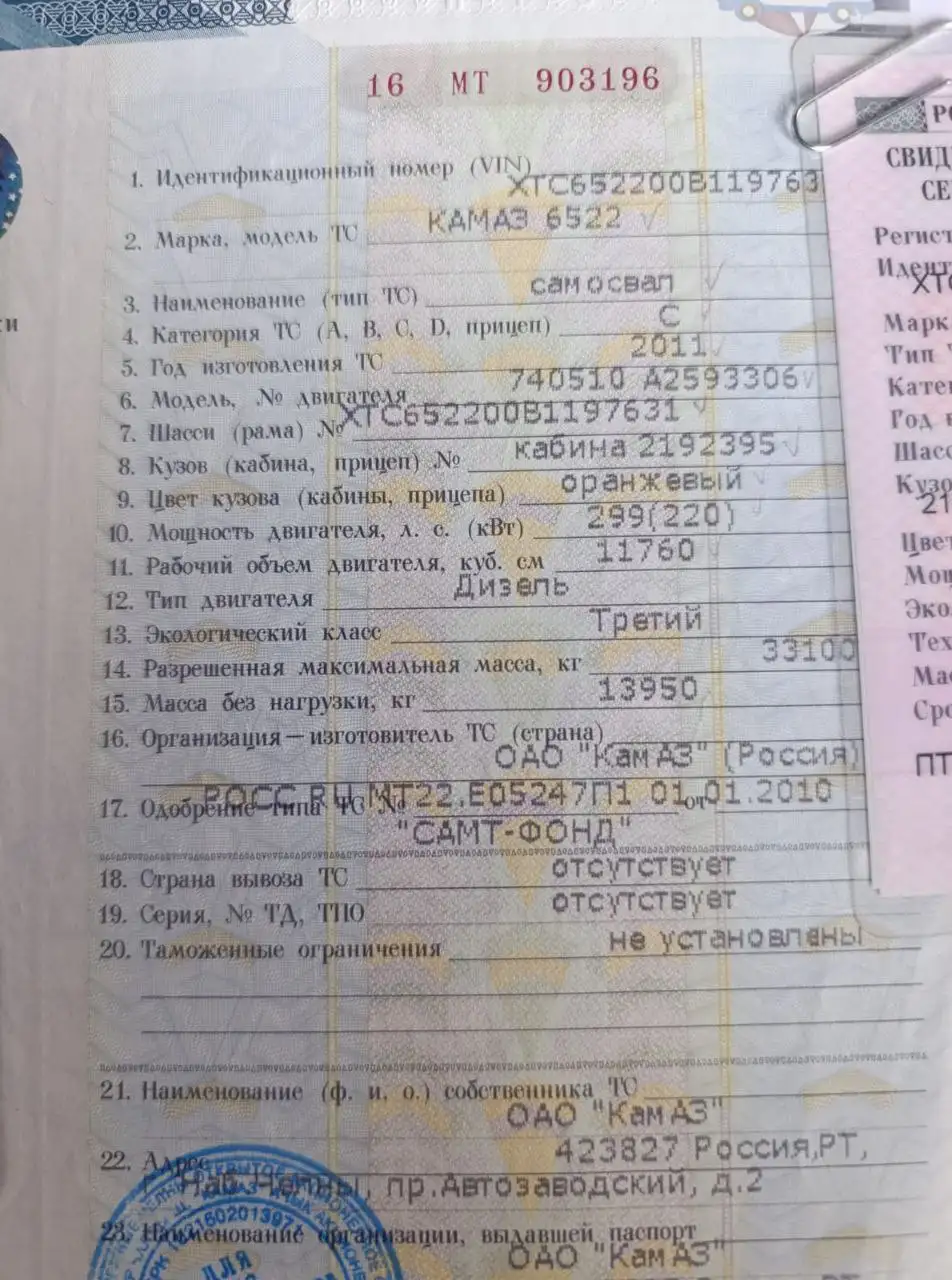 16 МТ 903196
1. Идентификационный номер (VIN) XTC652200B119763
2. Марка, модель ТС КАМАЗ 6522
3. Наименование (тип ТС) самосвал
4. Категория ТС (A, B, C, D, прицеп) C
5. Год изготовления ТС 2011
6. Модель, № двигателя 740510 A2593306
7. Шасси (рама) № XTC652200B1197631
8. Кузов (кабина, прицеп) № кабина 2192395
9. Цвет кузова (кабины, прицепа) оранжевый
10. Мощность двигателя, л. с. (кВт) 299(220)
11. Рабочий объем двигателя, куб. см 11760
12. Тип двигателя Дизель
13. Экологический класс Третий
14. Разрешенная максимальная масса, кг 33100
15. Масса без нагрузки, кг 13950
16. Организация—изготовитель ТС (страна)
ОАО "КамАЗ" (Россия)
17. Одобрение типа ТС № РОСС RU.МТ22.Е05247П1 от 01.01.2010
"САМТ-ФОНД"
18. Страна вывоза ТС отсутствует
19. Серия, № ТД, ТПО отсутствует
20. Таможенные ограничения не установлены
21. Наименование (ф. и. о.) собственника ТС
ОАО "КамАЗ"
22. Адрес 423827 Россия,РТ,
Наб.Челны, пр.Автозаводский, д.2
23. Наименование организации, выдавшей паспорт
ОАО "КамАЗ"
ДЛЯ
СВИД
СЕ
Регист
Идент
XTC
Марк
Тип
Катег
Год
Шасс
Кузо
21
Цвет
Мощ
Эко
Тех
Мас
Сро
ПТ